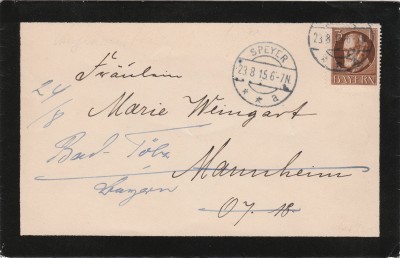 SPEYER
23.8.15.6-7N.
a
23.8
3
BAYERN
Fräulein
24/8
Marie Weingart
Bad-Tölz
Mannheim
Bayern
O7. 18.